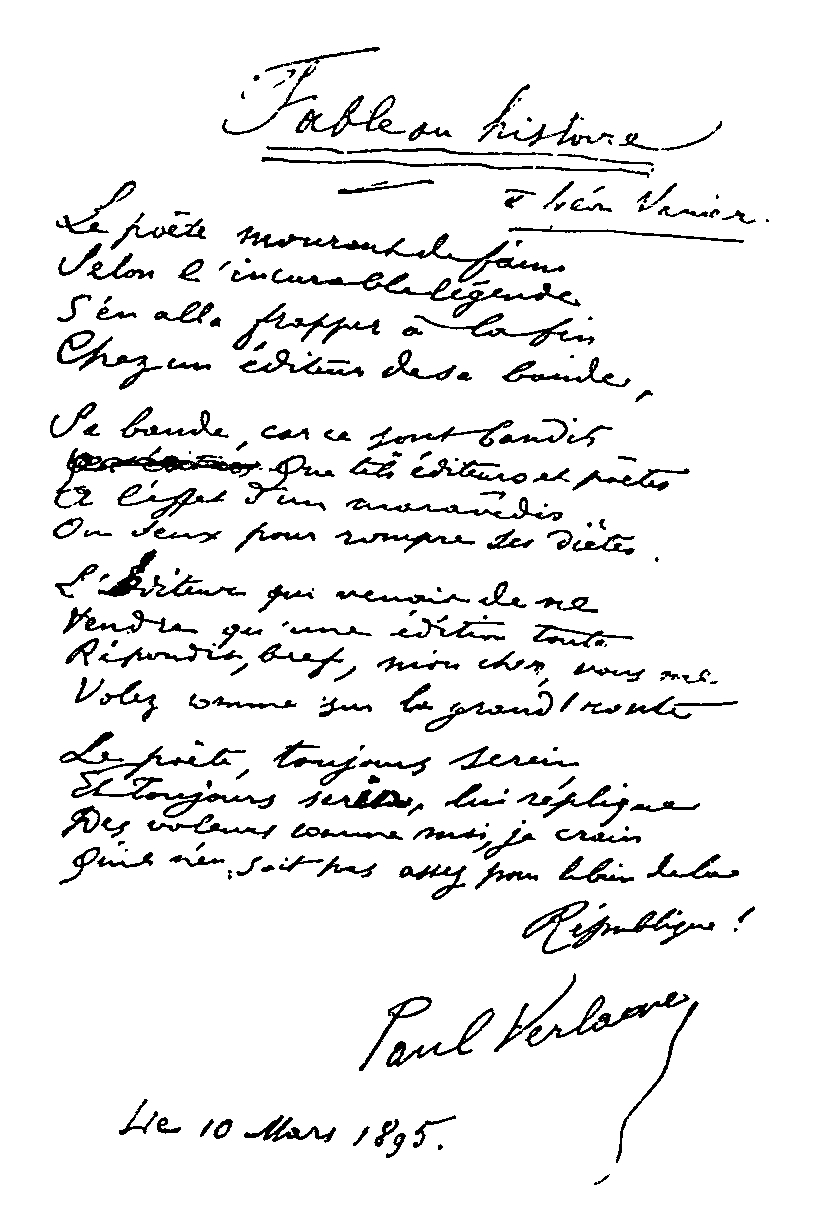 Fable ou histoire
à Léon Vanier.
Le poète mourant de faim
Selon l'incurable légende
S'en alla frapper à la fin
Chez un éditeur de sa bande,
Sa bande, car ce sont bandits
Que tels éditeurs et poètes
A l'effet d'un maravédis
Ou deux pour rompre ses diètes.
L'Éditeur qui venait de ne
Vendre qu'une édition toute
Répondit, bref, mon cher, vous me
Volez comme sur la grand'route
Le poète, toujours serein
Et toujours serin, lui réplique
Des voleurs comme moi, je crain
Qu'il n'en soit pas assez pour le bien de la
République !
Paul Verlaine
Le 10 Mars 1895.